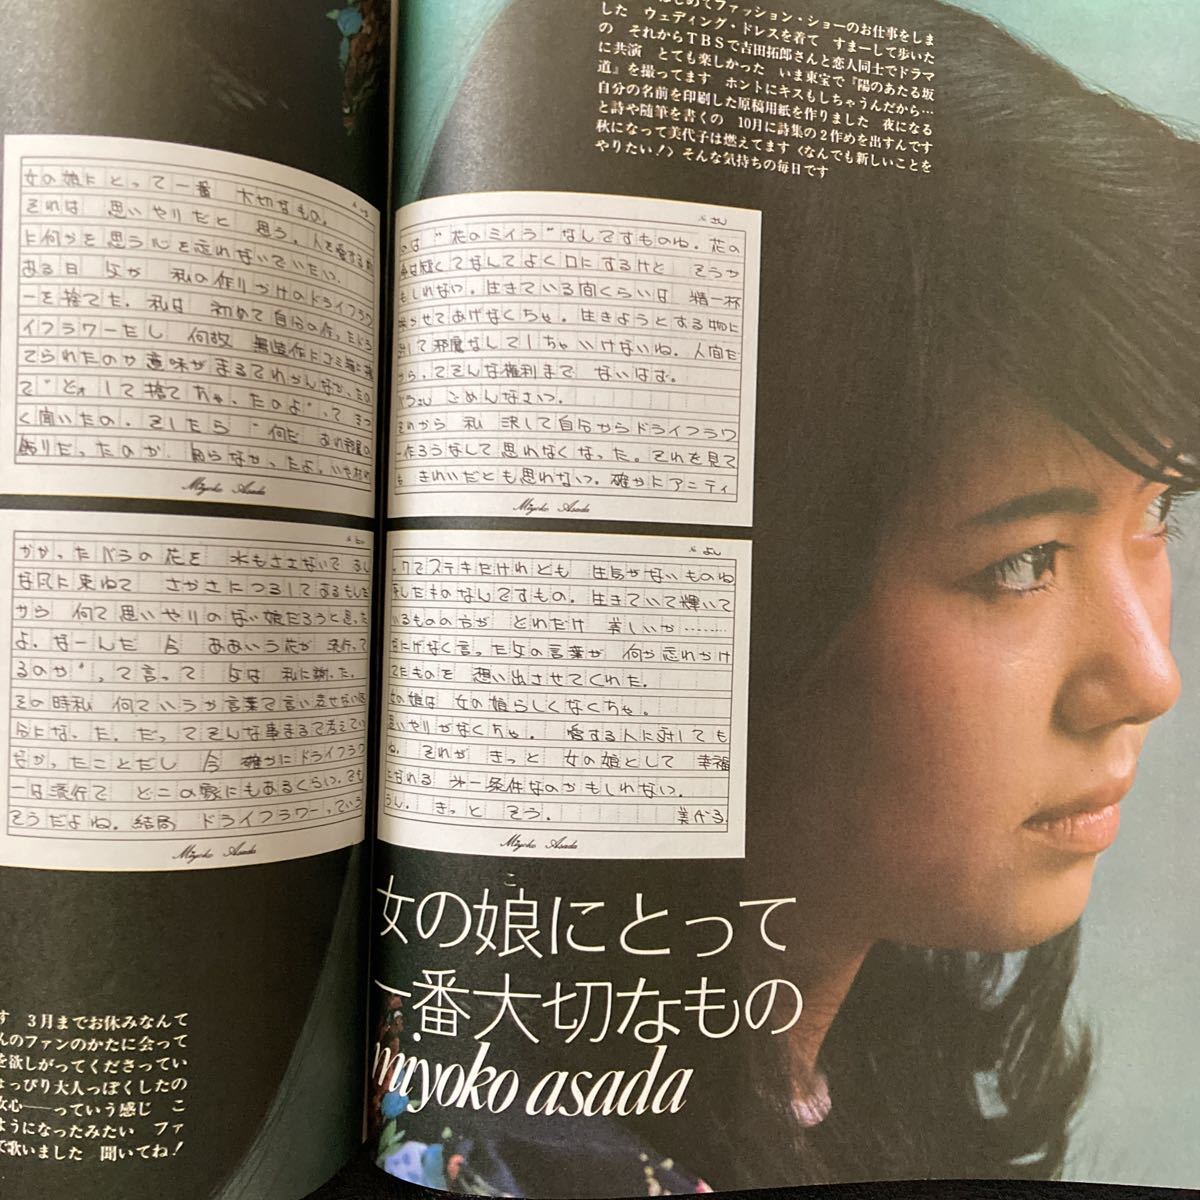 はじめてファッション・ショーのお仕事をしま
した ウェディング・ドレスを着て すまーして歩いた
の それからTBSで吉田拓郎さんと恋人同士でドラマ
に共演 とても楽しかった いま東宝で『陽のあたる坂
道』を撮ってます ホントにキスもしちゃうんだから…
自分の名前を印刷した原稿用紙を作りました 夜になる
と詩や随筆を書くの 10月に詩集の2作めを出すんです
秋になって美代子は燃えてます〈なんでも新しいことを
やりたい!〉そんな気持ちの毎日です
女の娘にとって一番 大切なもの。
それは 思いやりだと 思う。人を愛する前
に何かを思う心を忘れないでいたい。
ある日 父が 私の作りかけのドライフラワ
ーを捨てた。私は 初めて自分の作ったドラ
イフラワーだし 何故 無造作にゴミ箱に捨
てられたのか意味がまるでわかんなかったの
で"どォして捨てちゃったのよ"って きつ
く聞いたの。そしたら "何だ あれ部屋の
飾りだったのか、知らなかったよ。いや枯れ
Miyoko Asada
かかったバラの花を 水もささないで
な風に束ねて さかさにつるしてあるもんだ
から 何て思いやりのない娘だろうと思った
よ。なーんだ 今 ああいう花が 流行って
るのか"、って言って 父は 私に謝った。
その時私 何ていうか言葉で言い表せない
になった。だってそんな事まで考えてい
なかったことだし 今 確かにドライフラワ
ーは流行で どこの家にもあるくらい。でも
そうだよね。結局 ドライフラワーっていう
Miyoko Asada
さん
のは "花のミイラ"なんですものね。花の
命は短くてなんてよく口にするけど そうか
もしれない。生きている間くらいは 精一杯
咲かせてあげなくちゃ。生きようとする物に
対して邪魔なんてしちゃいけないね。人間だ
から、てそんな権利まで ないはず。
バラさん ごめんなさいっ。
それから 私 決して自分からドライフラワ
ー作ろうなんて思わなくなった。それを見て
も きれいだとも思わない。確かにアンティ
Miyoko Asada
よん
ークでステキだけれども 生気がないものね
死んだものなんですもの。生きていて輝いて
いるものの方が どれだけ 美しいか………
なにげなく言った父の言葉が 何か忘れかけ
てたものを 想い出させてくれた。
女の娘は 女の娘らしくなくちゃ。
思いやりがなくちゃ。 愛する人に対しても
ね。それが きっと 女の娘として 幸福
になれる 第一条件なのかもしれない。
うん。きっと そう。 美代子
Miyoko Asada
女の娘にとって
こ
一番大切なもの
miyoko asada
す 3月までお休みなんて
んのファンのかたに会って
を欲しがってくださってい
ょっぴり大人っぽくしたの
女心――っていう感じ こ
ようになったみたい ファ
で歌いました 聞いてね!